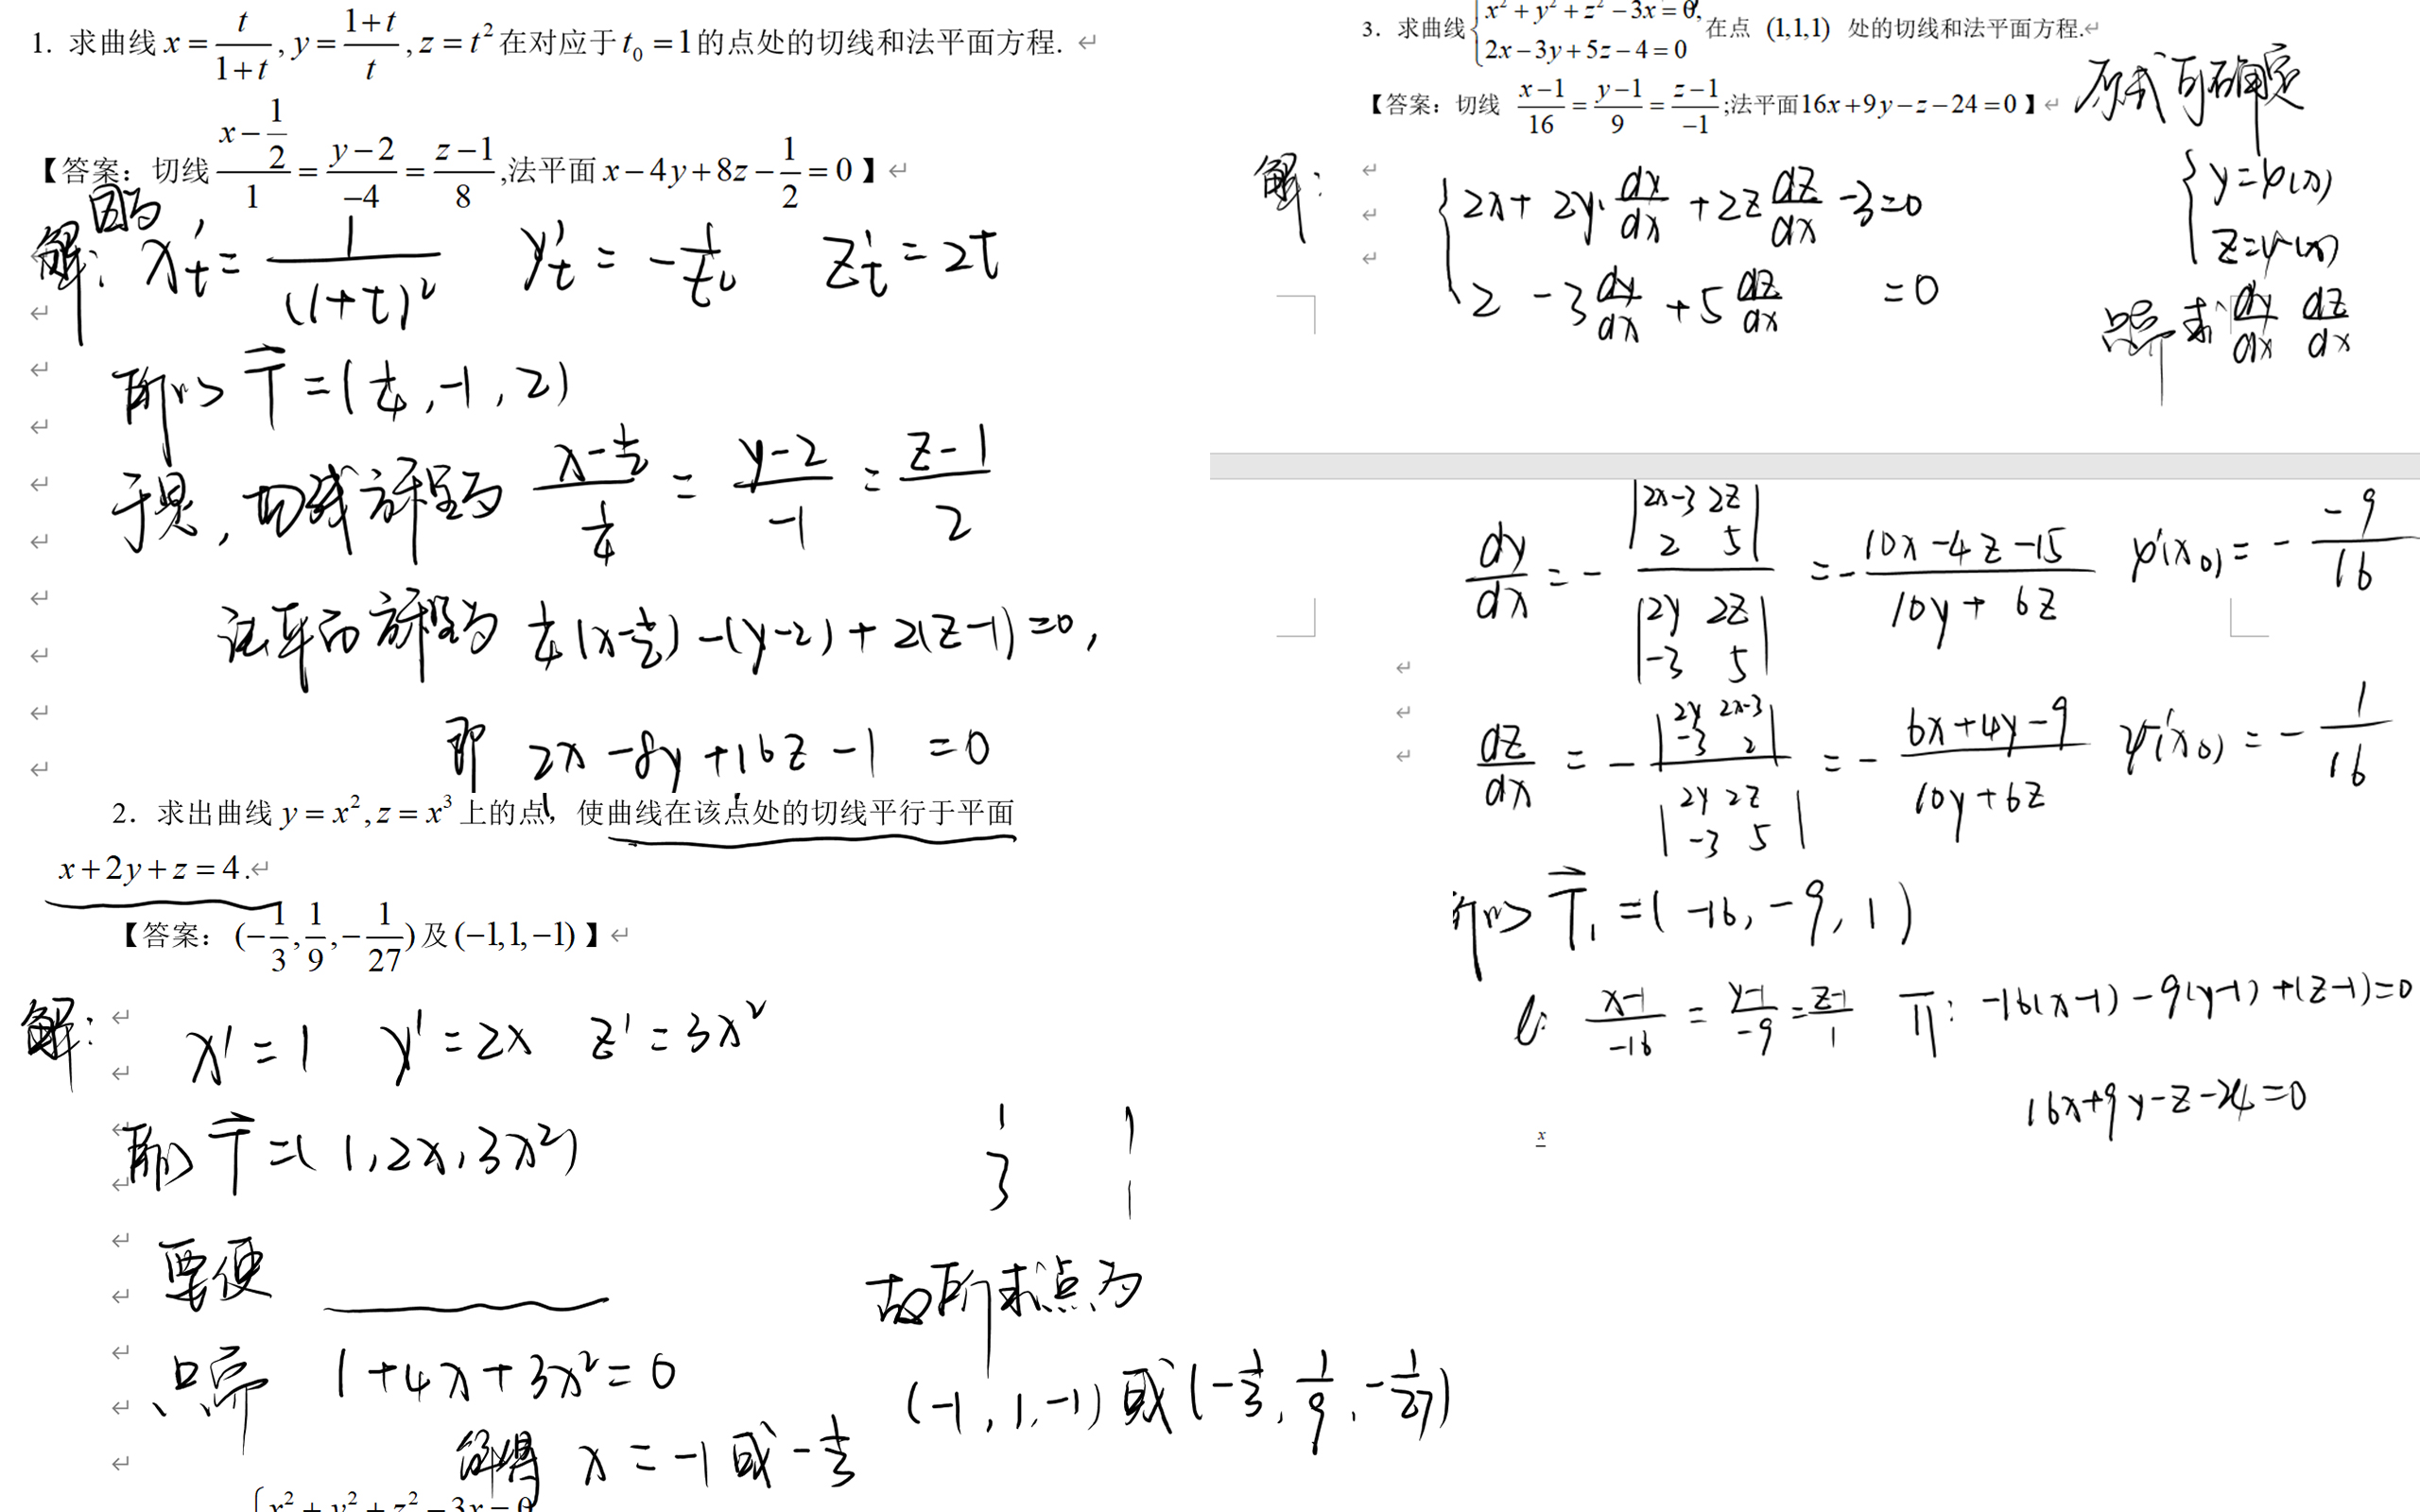 1. 求曲线 x = t/(1+t), y = (1+t)/t, z = t² 在对应于 t₀ = 1 的点处的切线和法平面方程.
【答案：切线 (x − 1/2)/1 = (y−2)/−4 = (z−1)/8 ,法平面 x − 4y + 8z − 1/2 = 0 】
因为
解： x't = 1/(1+t)² y't = −1/t² z't = 2t
所以 T⃗ = (1/4, −1, 2)
于是, 切线方程为 (x−1/2)/(1/4) = (y−2)/−1 = (z−1)/2
法平面方程为 1/4(x−1/2) −(y−2) + 2(z−1) = 0,
即 2x − 8y + 16z − 1 = 0
2. 求出曲线 y = x², z = x³ 上的点，使曲线在该点处的切线平行于平面
x + 2y + z = 4 .
【答案： (−1/3, 1/9, −1/27) 及 (−1,1,−1) 】
解： x' = 1 y' = 2x z' = 3x²
所以 T⃗ = (1, 2x, 3x²)
1 1
3 1
要使
只需 1 + 4x + 3x² = 0
解得 x = −1 或 −1/3
故所求点为
(−1, 1, −1) 或 (−1/3, 1/9, −1/27)
x² + y² + z² − 3x = 0
3. 求曲线 { x² + y² + z² − 3x = 0, 2x − 3y + 5z − 4 = 0 在点 (1,1,1) 处的切线和法平面方程.
【答案：切线 (x−1)/16 = (y−1)/9 = (z−1)/−1 ;法平面 16x + 9y − z − 24 = 0 】
原式可确定
{ y = φ(x)
z = ψ(x)
只需求 dy/dx dz/dx
解： { 2x + 2y·dy/dx + 2z dz/dx − 3 = 0
2 − 3 dy/dx + 5 dz/dx = 0
dy/dx = − |2x−3 2z; 2 5| / |2y 2z; −3 5| = − (10x−4z−15)/(10y+6z) φ'(x₀) = − −9/16
dz/dx = − |2y 2x−3; −3 2| / |2y 2z; −3 5| = − (6x+4y−9)/(10y+6z) ψ'(x₀) = − 1/16
所以 T⃗₁ = (−16, −9, 1)
l: (x−1)/−16 = (y−1)/−9 = (z−1)/1 Π: −16(x−1) − 9(y−1) + (z−1) = 0
16x + 9y − z − 24 = 0
x